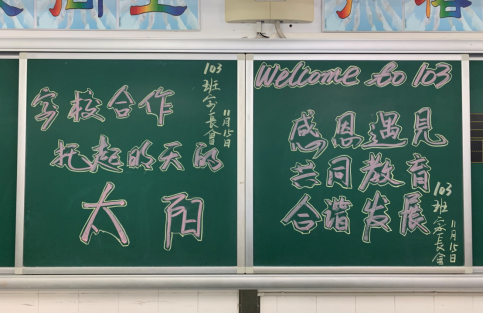 家校合作
托起明天的
太阳
103
班家長會
11月15日
Welcome to 103
感恩遇見
共同教育
合谐发展
103
班家長會
11月15日